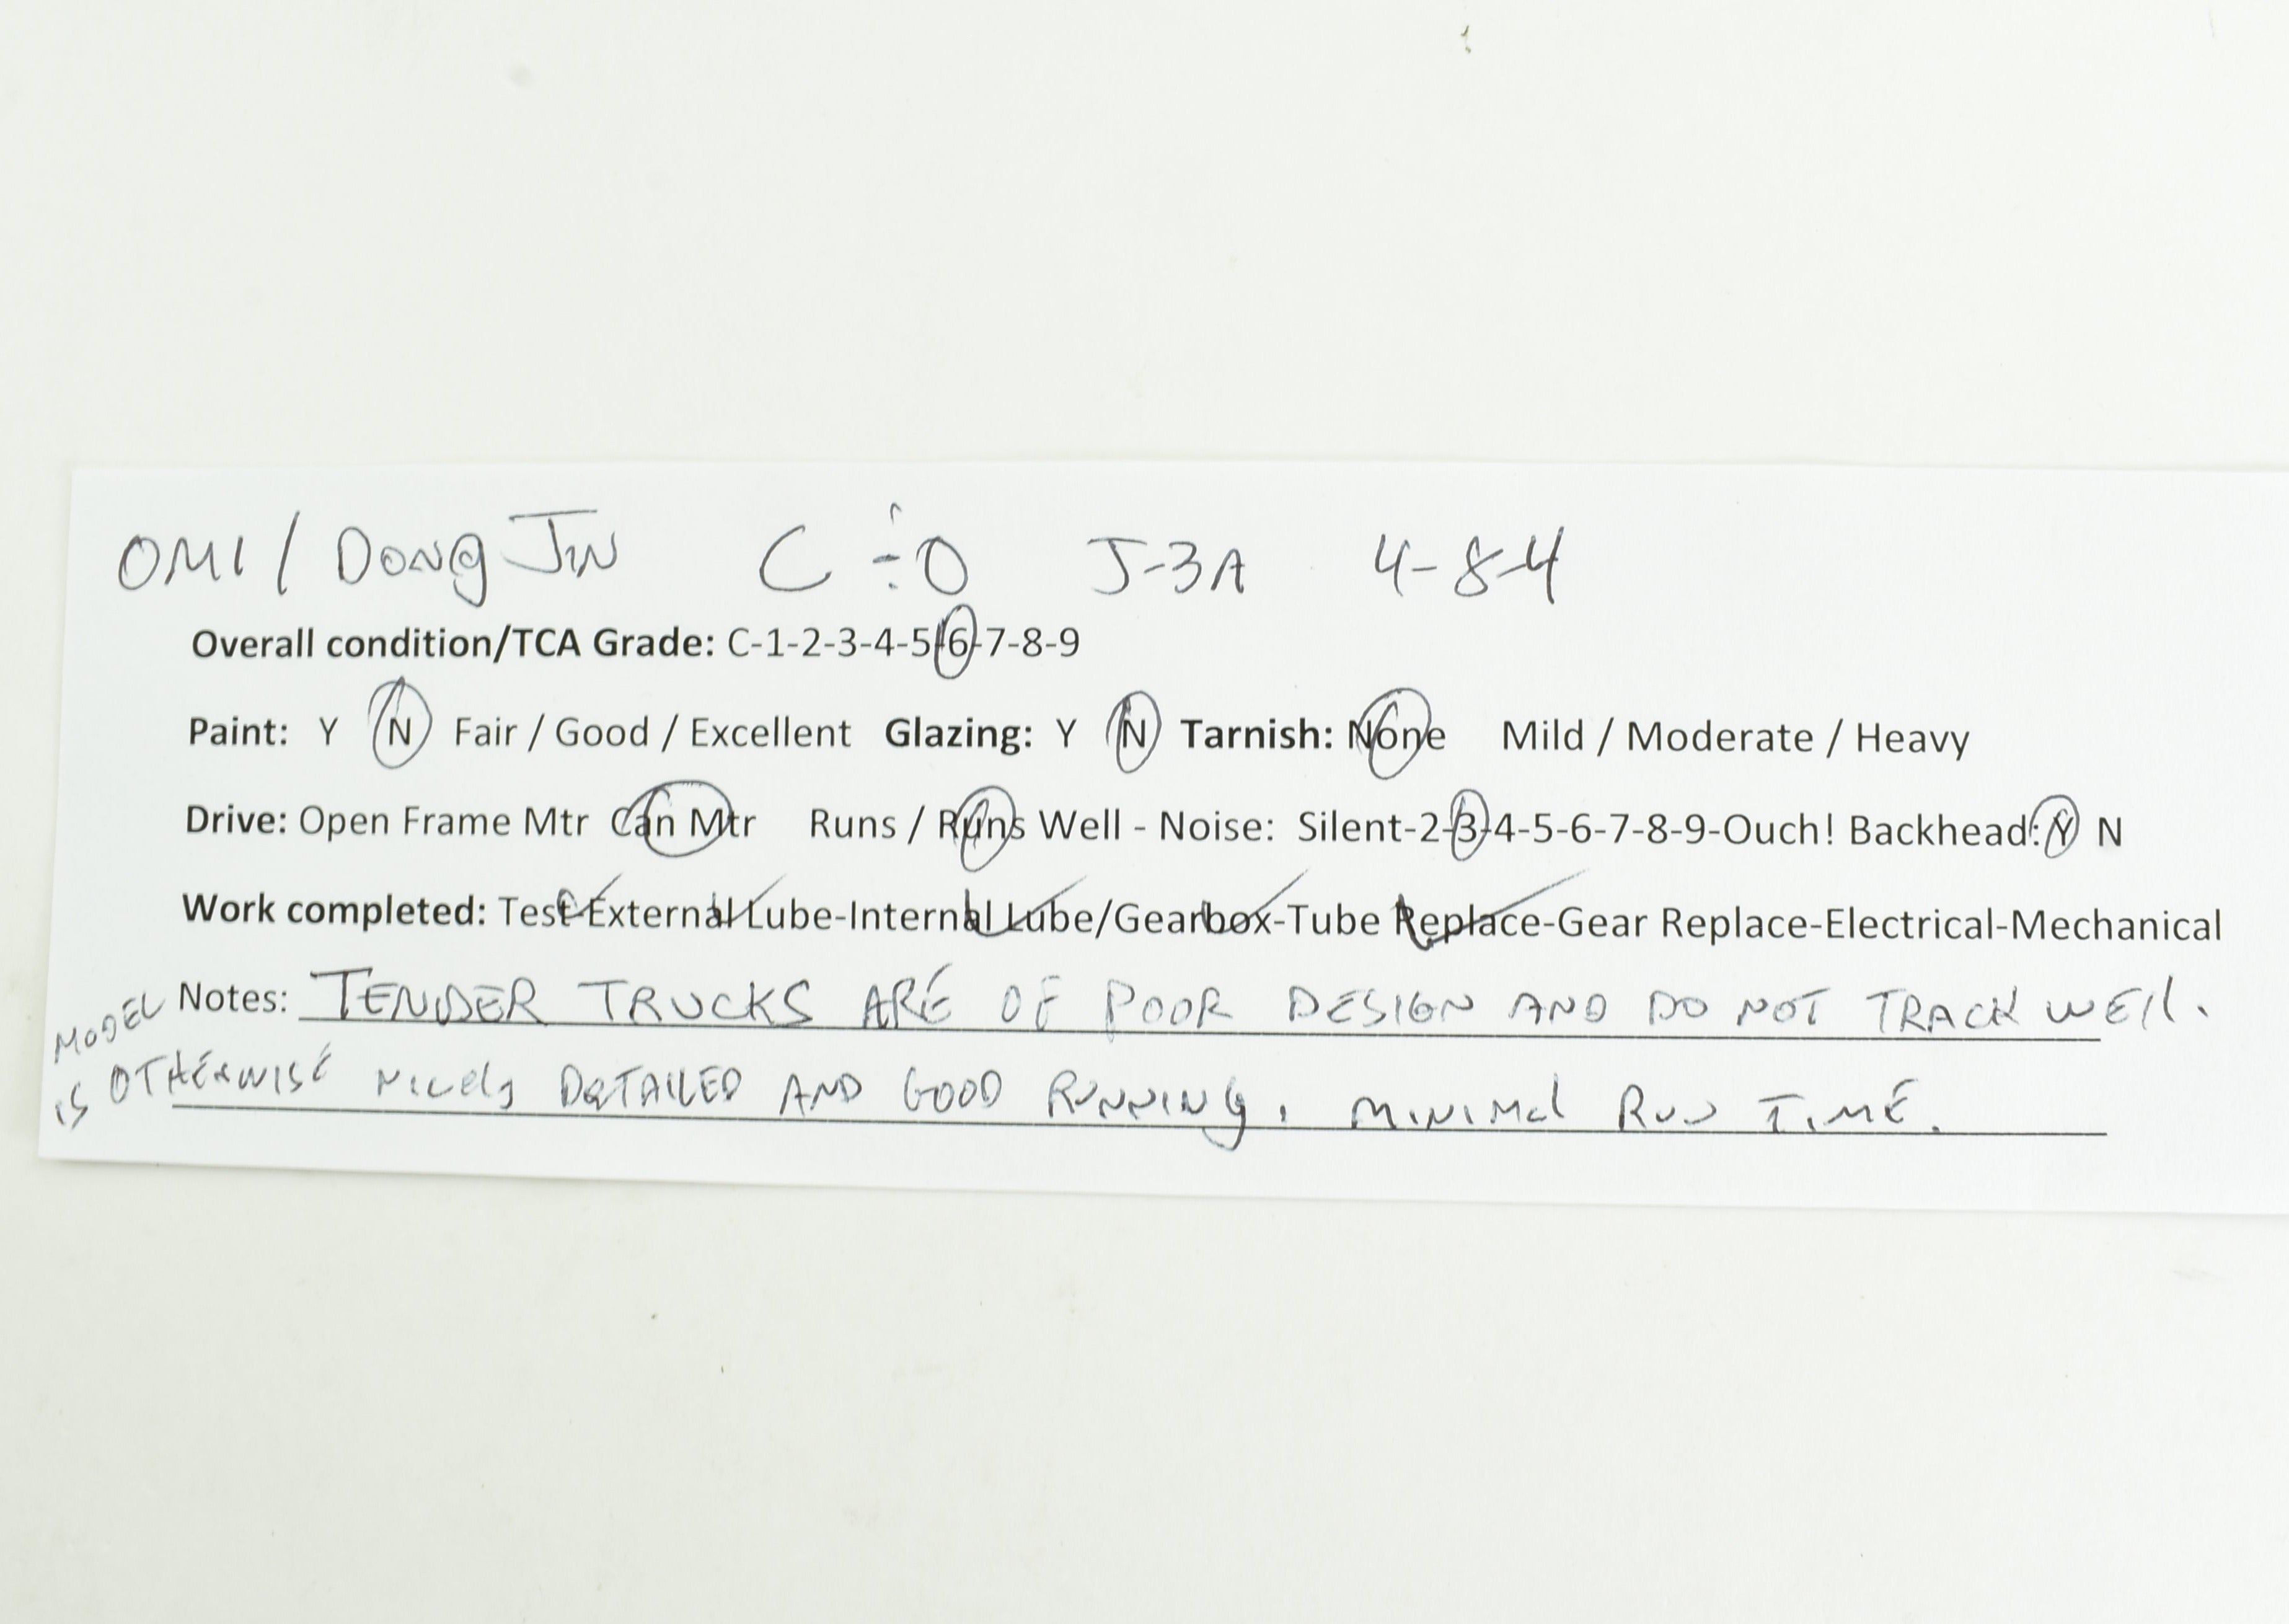 OMI / DONG JIN C ÷ O J-3A 4-8-4
Overall condition/TCA Grade: C-1-2-3-4-5-6-7-8-9
Paint: Y N Fair / Good / Excellent Glazing: Y N Tarnish: None Mild / Moderate / Heavy
Drive: Open Frame Mtr Can Mtr Runs / Runs Well - Noise: Silent-2-3-4-5-6-7-8-9-Ouch! Backhead: Y N
Work completed: Test-External Lube-Internal Lube/Gearbox-Tube Replace-Gear Replace-Electrical-Mechanical
Notes: TENDER TRUCKS ARE OF POOR DESIGN AND DO NOT TRACK WELL.
MODEL
IS OTHERWISE NICELY DETAILED AND GOOD RUNNING. MINIMAL RUN TIME.